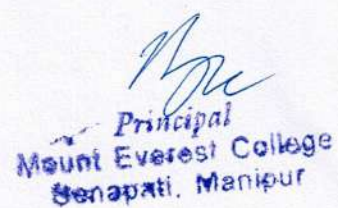 Principal
Mount Everest College
Senapati, Manipur